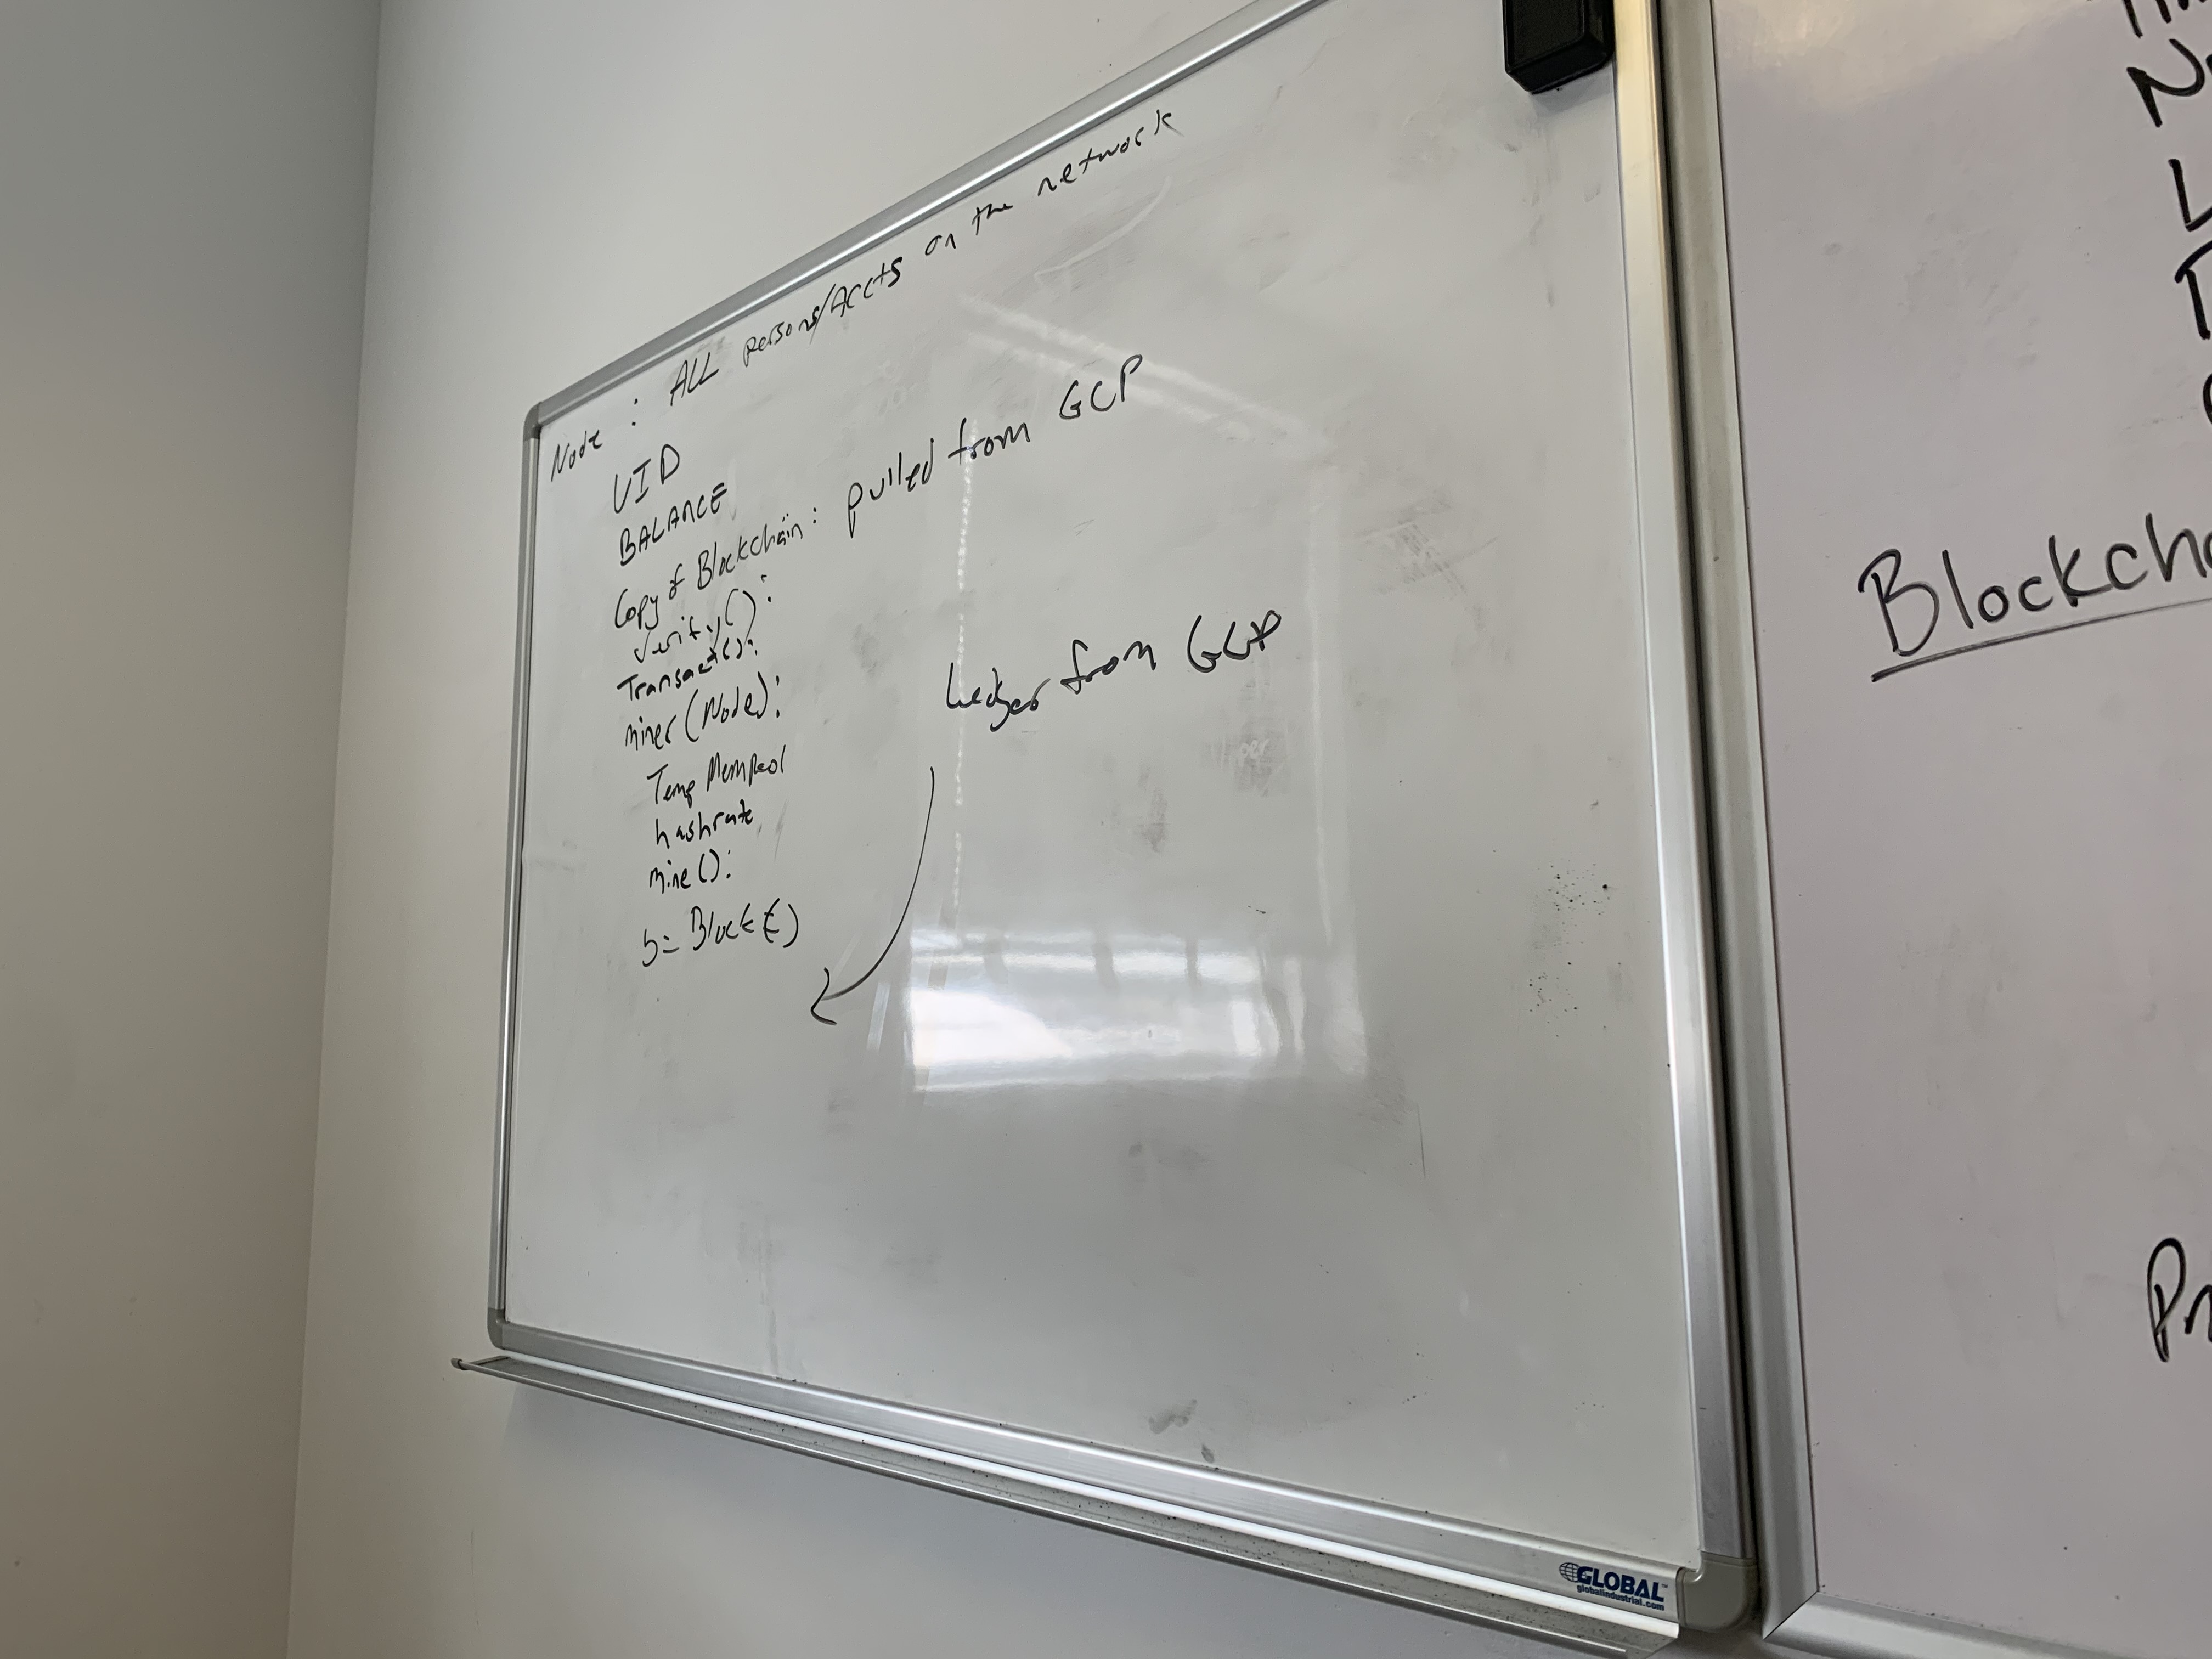 Node : ALL persons/Accts on the network
UID
BALANCE
Copy of Blockchain: pulled from GCP
verify():
Transact():
miner(Node):
Temp Mempool
hashrate
mine():
b= Block()
Ledger from GCP
per
GLOBAL™
globalindustrial.com
N
L
T
Blockcha
Pr